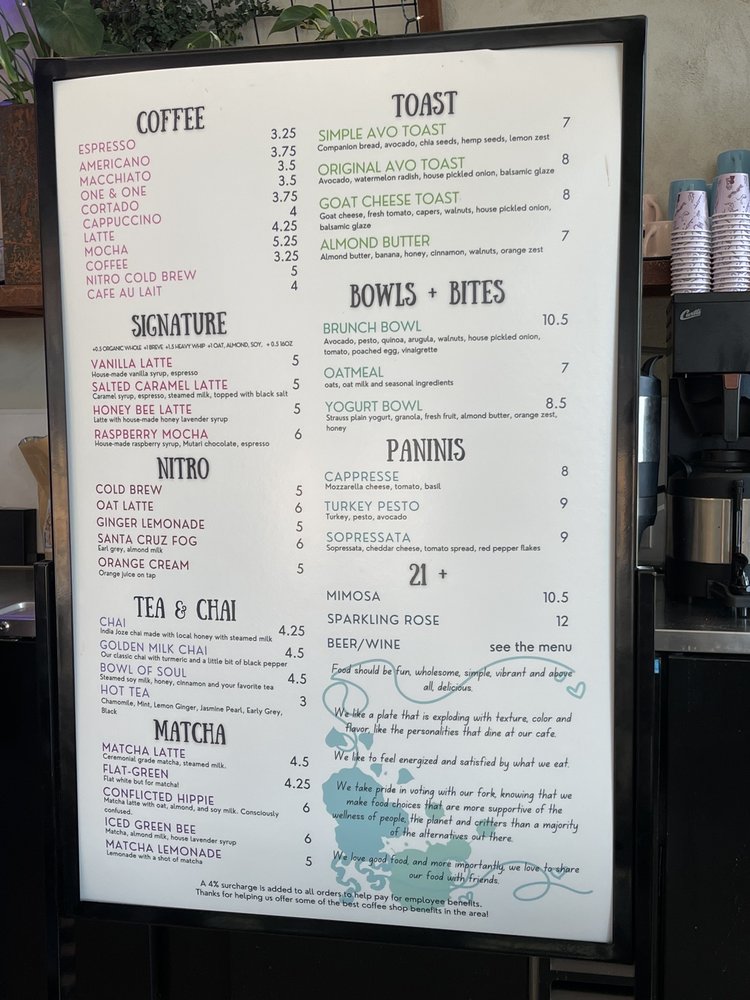 COFFEE
ESPRESSO 3.25
AMERICANO 3.75
MACCHIATO 3.5
ONE & ONE 3.5
CORTADO 3.75
CAPPUCCINO 4
LATTE 4.25
MOCHA 5.25
COFFEE 3.25
NITRO COLD BREW 5
CAFE AU LAIT 4
SIGNATURE
+0.5 ORGANIC WHOLE +1 BREVE +1.5 HEAVY WHIP +1 OAT, ALMOND, SOY, + 0.5 16OZ
VANILLA LATTE 5
House-made vanilla syrup, espresso
SALTED CARAMEL LATTE 5
Caramel syrup, espresso, steamed milk, topped with black salt
HONEY BEE LATTE 5
Latte with house-made honey lavender syrup
RASPBERRY MOCHA 6
House-made raspberry syrup, Mutari chocolate, espresso
NITRO
COLD BREW 5
OAT LATTE 6
GINGER LEMONADE 5
SANTA CRUZ FOG 6
Earl grey, almond milk
ORANGE CREAM 5
Orange juice on tap
TEA & CHAI
CHAI 4.25
India Joze chai made with local honey with steamed milk
GOLDEN MILK CHAI 4.5
Our classic chai with turmeric and a little bit of black pepper
BOWL OF SOUL 4.5
Steamed soy milk, honey, cinnamon and your favorite tea
HOT TEA 3
Chamomile, Mint, Lemon Ginger, Jasmine Pearl, Early Grey,
Black
MATCHA
MATCHA LATTE 4.5
Ceremonial grade matcha, steamed milk.
FLAT-GREEN 4.25
Flat white but for matcha!
CONFLICTED HIPPIE 6
Matcha latte with oat, almond, and soy milk. Consciously
confused.
ICED GREEN BEE 6
Matcha, almond milk, house lavender syrup
MATCHA LEMONADE 5
Lemonade with a shot of matcha
TOAST
SIMPLE AVO TOAST 7
Companion bread, avocado, chia seeds, hemp seeds, lemon zest
ORIGINAL AVO TOAST 8
Avocado, watermelon radish, house pickled onion, balsamic glaze
GOAT CHEESE TOAST 8
Goat cheese, fresh tomato, capers, walnuts, house pickled onion,
balsamic glaze
ALMOND BUTTER 7
Almond butter, banana, honey, cinnamon, walnuts, orange zest
BOWLS + BITES
BRUNCH BOWL 10.5
Avocado, pesto, quinoa, arugula, walnuts, house pickled onion,
tomato, poached egg, vinaigrette
OATMEAL 7
oats, oat milk and seasonal ingredients
YOGURT BOWL 8.5
Strauss plain yogurt, granola, fresh fruit, almond butter, orange zest,
honey
PANINIS
CAPPRESSE 8
Mozzarella cheese, tomato, basil
TURKEY PESTO 9
Turkey, pesto, avocado
SOPRESSATA 9
Sopressata, cheddar cheese, tomato spread, red pepper flakes
21 +
MIMOSA 10.5
SPARKLING ROSE 12
BEER/WINE see the menu
Food should be fun, wholesome, simple, vibrant and above
all, delicious.
We like a plate that is exploding with texture, color and
flavor, like the personalities that dine at our cafe.
We like to feel energized and satisfied by what we eat.
We take pride in voting with our fork, knowing that we
make food choices that are more supportive of the
wellness of people, the planet and critters than a majority
of the alternatives out there.
We love good food, and more importantly, we love to share
our food with friends.
A 4% surcharge is added to all orders to help pay for employee benefits.
Thanks for helping us offer some of the best coffee shop benefits in the area!
Curtis